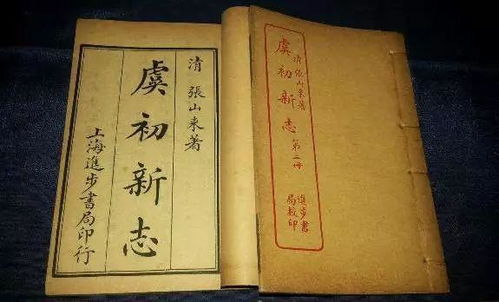 清 張山來著
虞初新志
上海進步書局印行
清 張山來著
虞初新志 第三冊
進步書
局校印